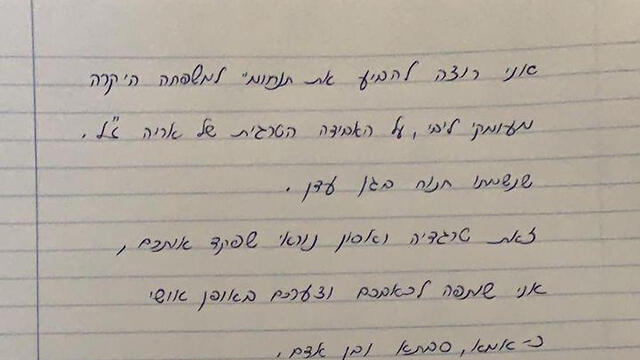 אני רוצה להביע את תנחומיי למשפחה היקרה
מעומקי ליבי, על האבידה הטרגית של אריה ז"ל.
שנשמתו תנוח בגן עדן.
זאת טרגדיה ואסון נוראי שפקד אתכם,
אני שותפה לכאבכם וצערכם באופן אישי
כ-אמא, סבתא ובן אדם.